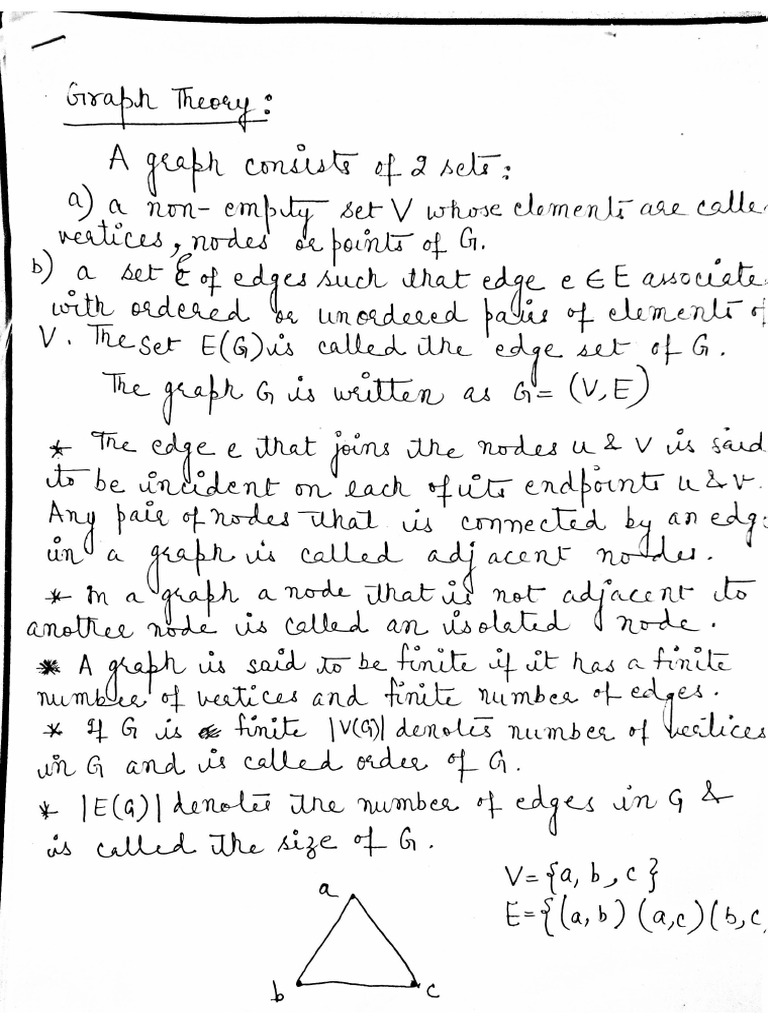 Graph Theory:
A graph consists of 2 sets:
a) a non-empity set V whose elements are calle
vertices, nodes or points of G.
b) a set E of edges such that edge e ∈ E associate
with ordered or unordered pairs of elements of
V. The set E(G) is called the edge set of G.
The graph G is written as G = (V, E)
* The edge e that joins the nodes u & V is said
to be incident on each of its endpoints u & v.
Any pair of nodes that is connected by an edg
in a graph is called adjacent nodes.
* In a graph a node that is not adjacent to
another node is called an isolated node.
* A graph is said to be finite if it has a finite
number of vertices and finite number of edges.
* If G is finite |V(G)| denotes number of vertices
in G and is called order of G.
* |E(G)| denotes the number of edges in G &
is called the size of G.
V = {a, b, c}
E = {(a, b) (a,c) (b, c
a
b c